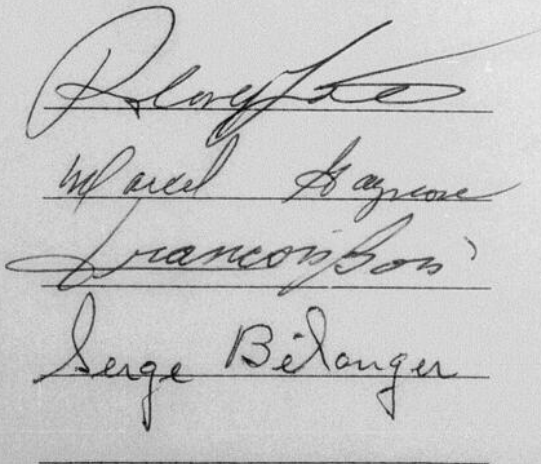 Marcel Gagnon
François Bois
Serge Bélanger